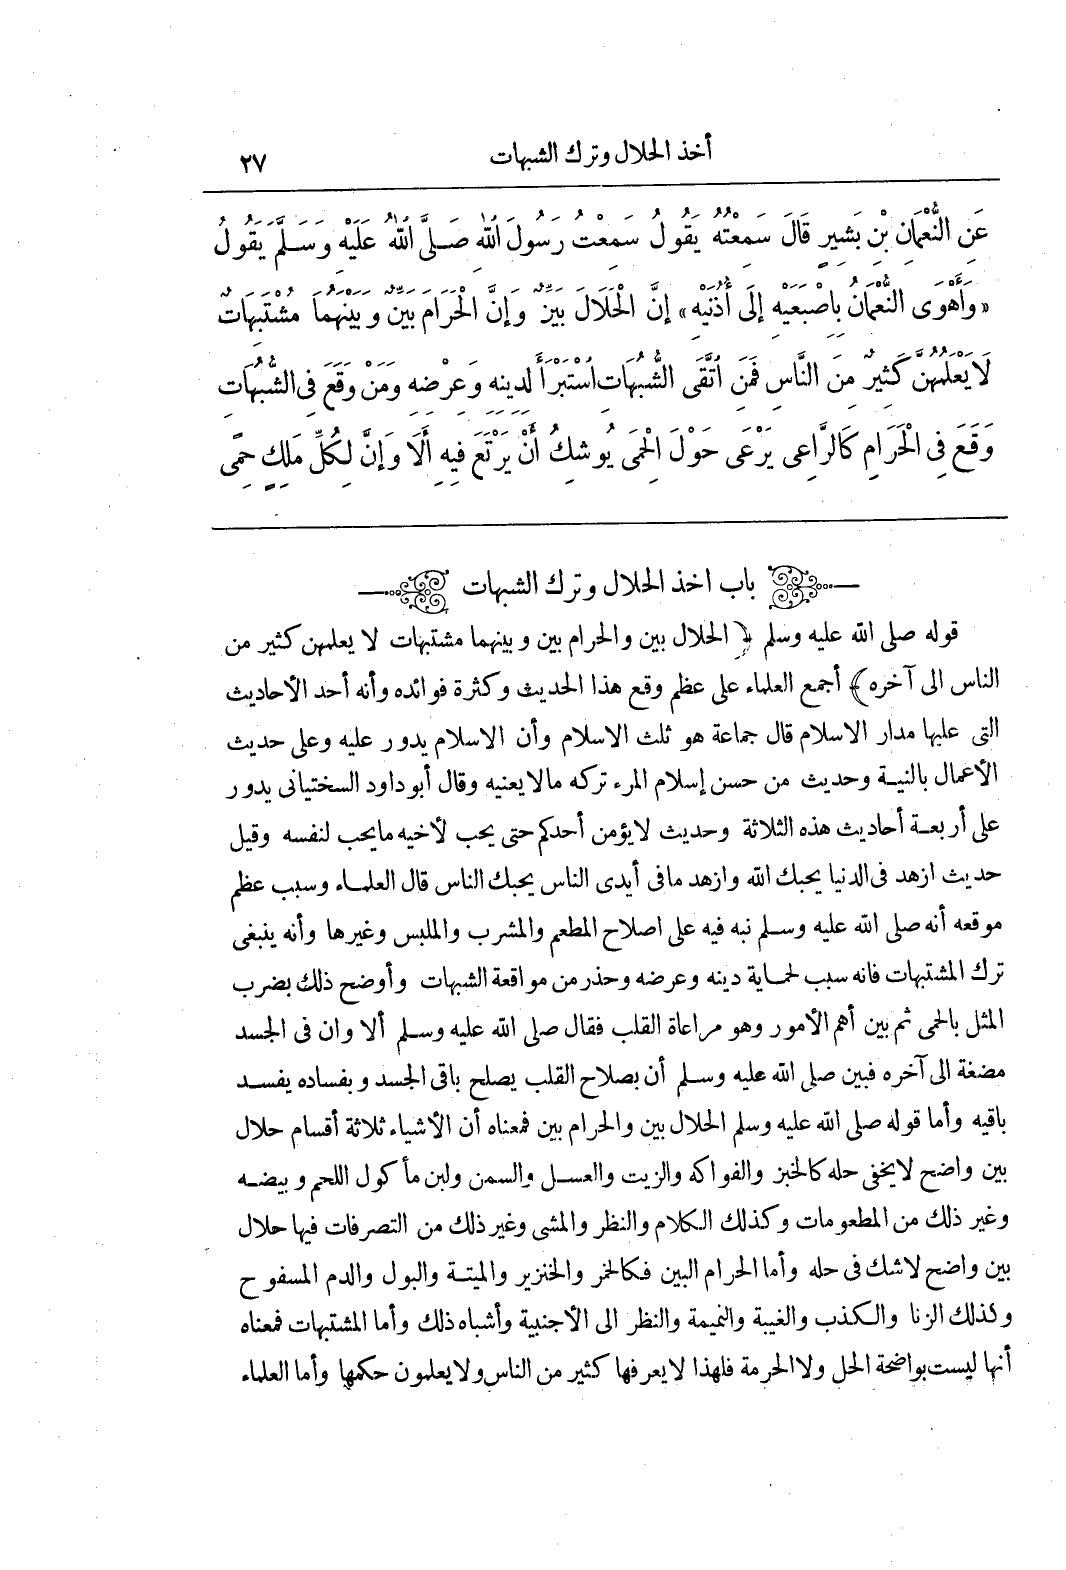 أخذ الحلال وترك الشبهات ٢٧
عَنِ النُّعْمَانِ بْنِ بَشِيرٍ قَالَ سَمِعْتُهُ يَقُولُ سَمِعْتُ رَسُولَ اللّٰهِ صَلَّى اللّٰهُ عَلَيْهِ وَسَلَّمَ يَقُولُ
«وَأَهْوَى النُّعْمَانُ بِإِصْبَعَيْهِ إِلَى أُذُنَيْهِ» إِنَّ الْحَلَالَ بَيِّنٌ وَإِنَّ الْحَرَامَ بَيِّنٌ وَبَيْنَهُمَا مُشْتَبِهَاتٌ
لَا يَعْلَمُهُنَّ كَثِيرٌ مِنَ النَّاسِ فَمَنِ اتَّقَى الشُّبُهَاتِ اسْتَبْرَأَ لِدِينِهِ وَعِرْضِهِ وَمَنْ وَقَعَ فِى الشُّبُهَاتِ
وَقَعَ فِى الْحَرَامِ كَالرَّاعِى يَرْعَى حَوْلَ الْحِمَى يُوشِكُ أَنْ يَرْتَعَ فِيهِ أَلَا وَإِنَّ لِكُلِّ مَلِكٍ حِمًى
باب اخذ الحلال وترك الشبهات
قوله صلى الله عليه وسلم ﴿ الحلال بين والحرام بين وبينهما مشتبهات لا يعلمهن كثير من
الناس الى آخره ﴾ أجمع العلماء على عظم وقع هذا الحديث وكثرة فوائده وأنه أحد الأحاديث
التى عليها مدار الاسلام قال جماعة هو ثلث الاسلام وأن الاسلام يدور عليه وعلى حديث
الأعمال بالنية وحديث من حسن إسلام المرء تركه مالا يعنيه وقال أبو داود السختيانى يدور
على أربعة أحاديث هذه الثلاثة وحديث لايؤمن أحدكم حتى يحب لأخيه مايحب لنفسه وقيل
حديث ازهد فى الدنيا يحبك الله وازهد مافى أيدى الناس يحبك الناس قال العلماء وسبب عظم
موقعه أنه صلى الله عليه وسلم نبه فيه على اصلاح المطعم والمشرب والملبس وغيرها وأنه ينبغى
ترك المشتبهات فانه سبب لحماية دينه وعرضه وحذر من مواقعة الشبهات وأوضح ذلك بضرب
المثل بالحمى ثم بين أهم الأمور وهو مراعاة القلب فقال صلى الله عليه وسلم ألا وان فى الجسد
مضغة الى آخره فبين صلى الله عليه وسلم أن بصلاح القلب يصلح باقى الجسد وبفساده يفسد
باقيه وأما قوله صلى الله عليه وسلم الحلال بين والحرام بين فمعناه أن الأشياء ثلاثة أقسام حلال
بين واضح لايخفى حله كالخبز والفواكه والزيت والعسل والسمن ولبن مأكول اللحم وبيضه
وغير ذلك من المطعومات وكذلك الكلام والنظر والمشى وغير ذلك من التصرفات فيها حلال
بين واضح لاشك فى حله وأما الحرام البين فكالخمر والخنزير والميتة والبول والدم المسفوح
وكذلك الزنا والكذب والغيبة والنميمة والنظر الى الأجنبية وأشباه ذلك وأما المشتبهات فمعناه
أنها ليست بواضحة الحل ولا الحرمة فلهذا لايعرفها كثير من الناس ولايعلمون حكمها وأما العلماء